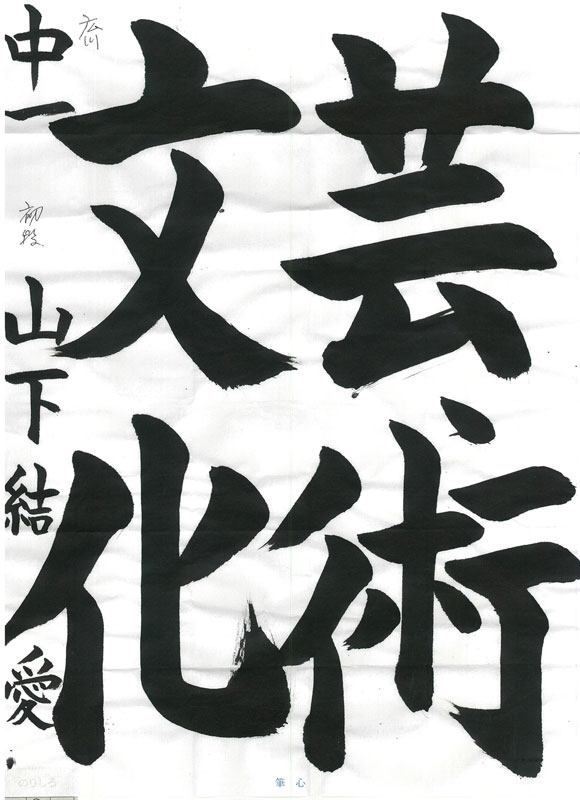 芸術
文化
中一 山下結愛
広川
初段
筆心
のりしろ